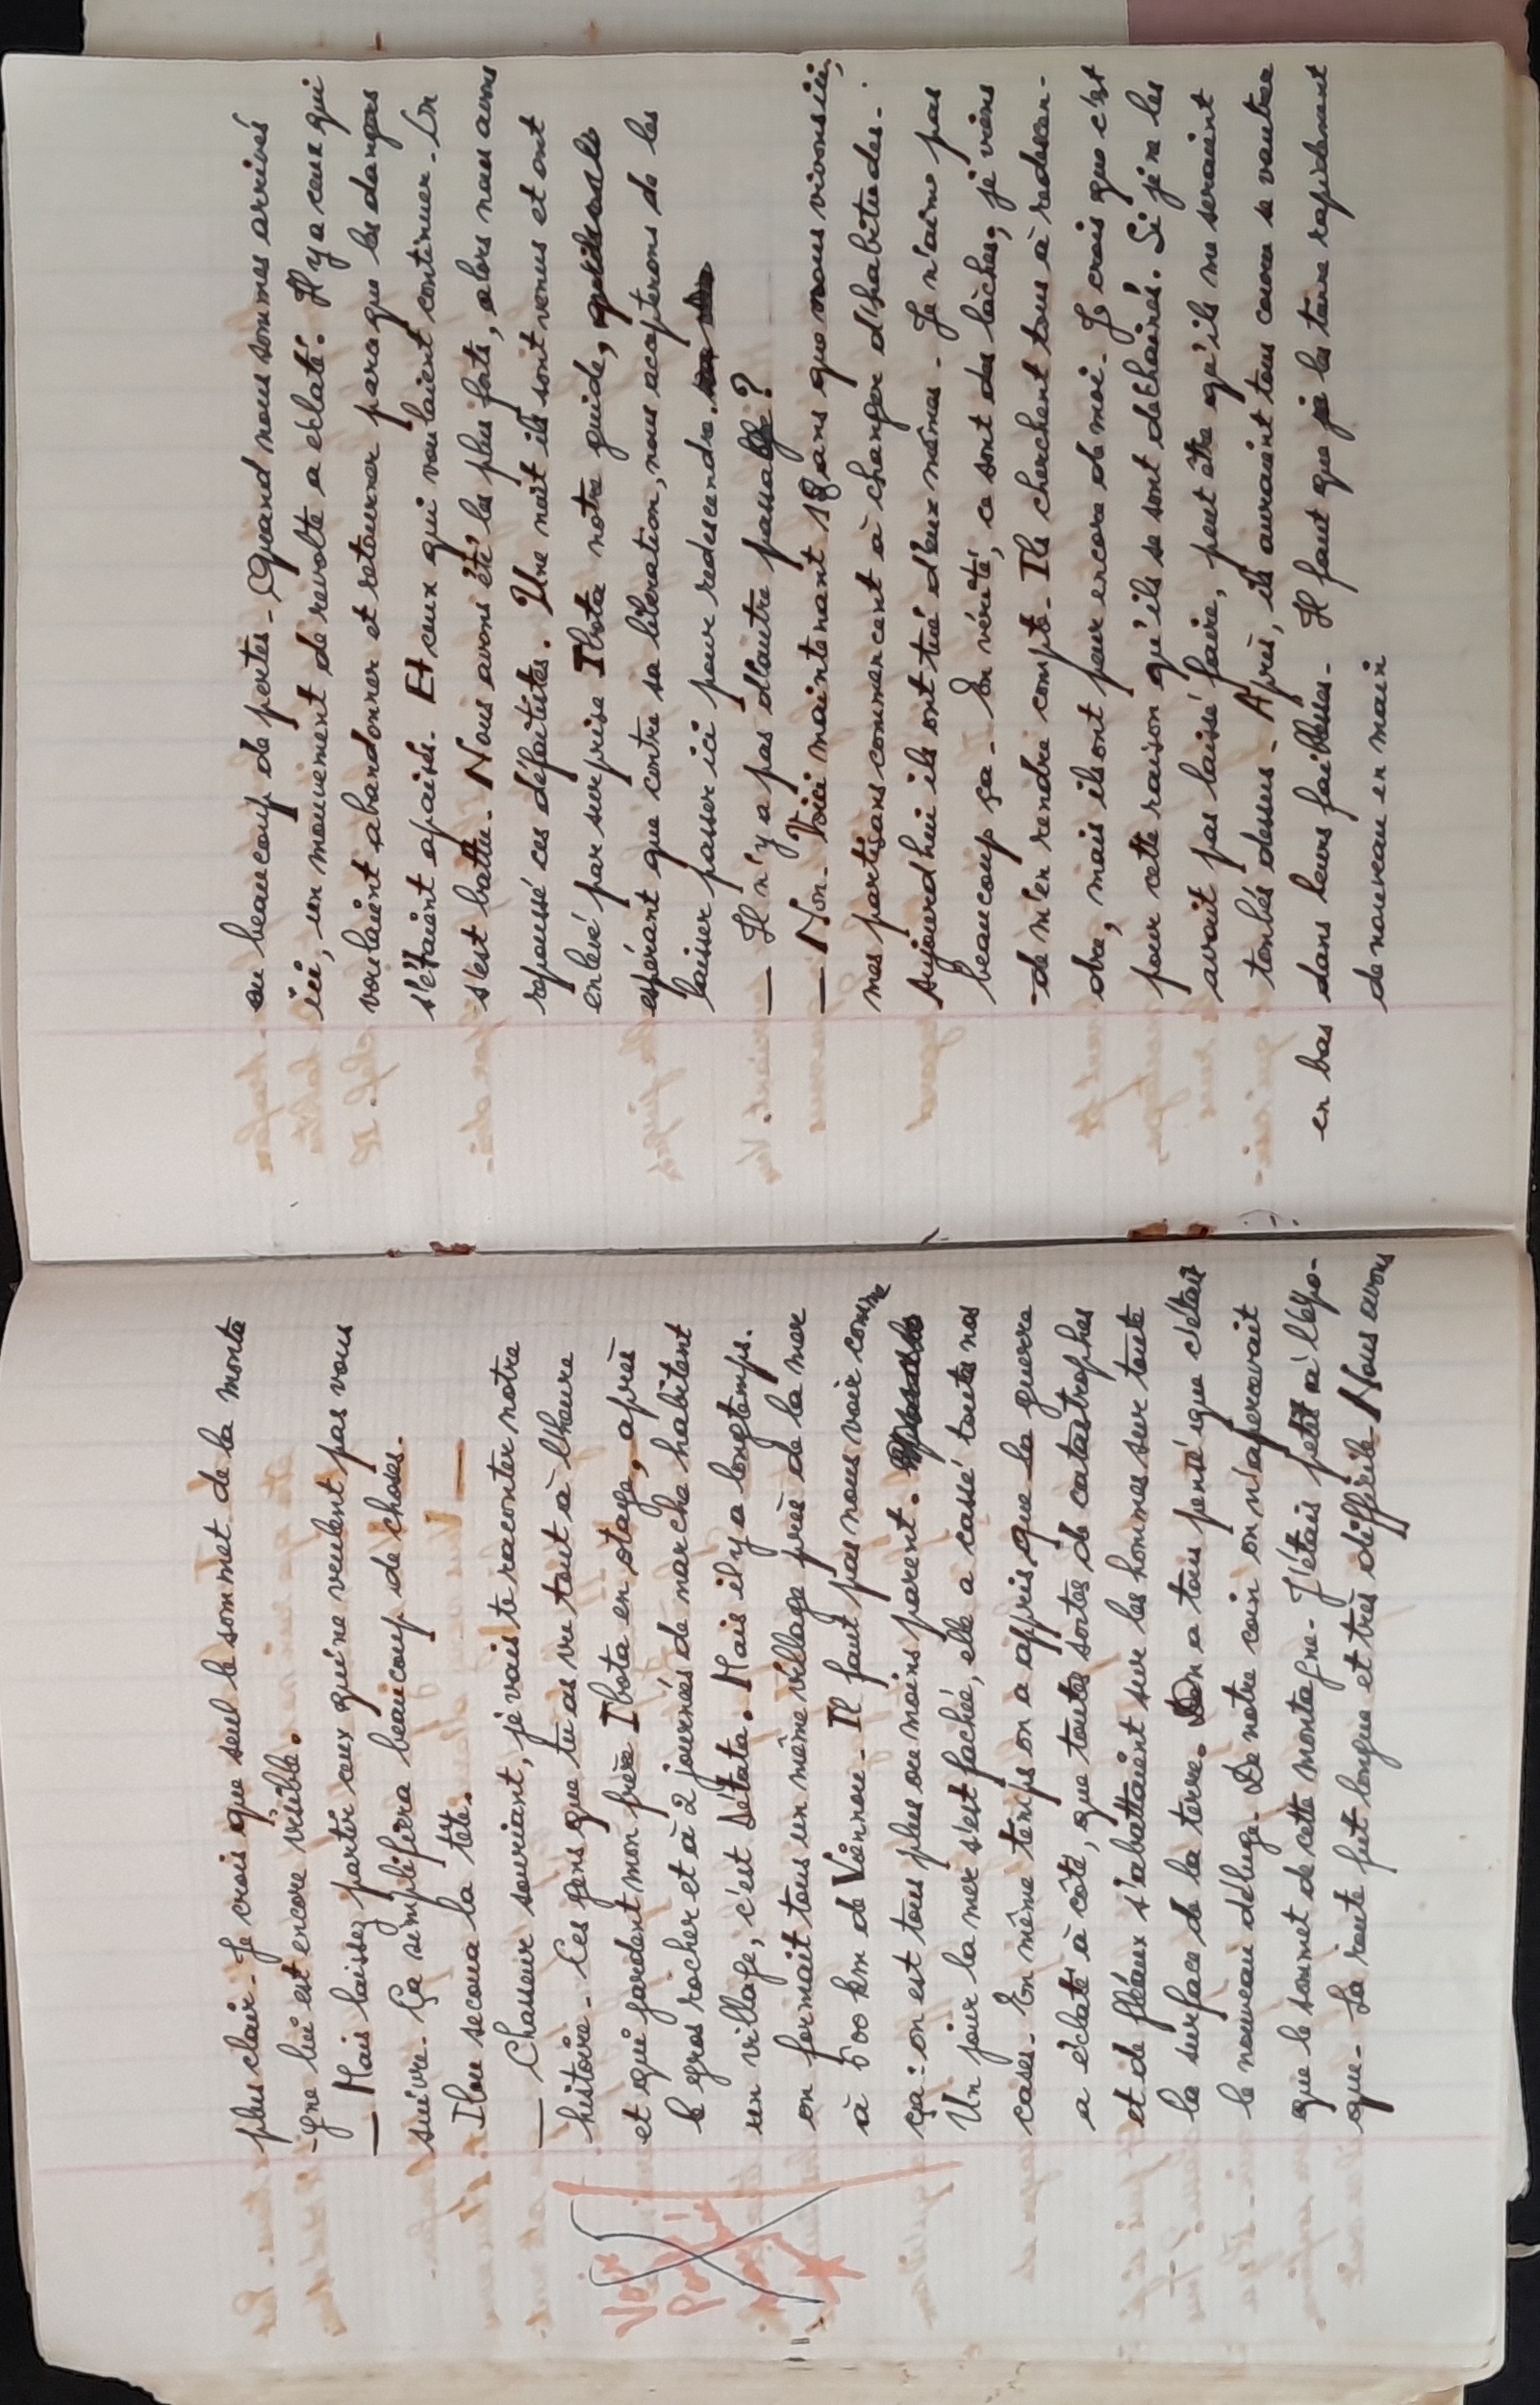 plus clair. Je crois que seul le sommet de la monta
-gne lui est encore visible.
— Mais laissez partir ceux qui ne veulent pas vous
suivre. Ça simplifiera beaucoup de choses.
Ilou secoua la tête.
— Chasseur souriant, je vais te raconter notre
histoire. Ces gens que tu as vu tout à l'heure
et qui gardent mon frère Ibota en otage, après
le gros rocher et à 2 journées de marche habitent
un village, c'est Sétata. Mais il y a longtemps.
on formait tous un même village près de la mer
à 500 km de Viennou. Il faut pas nous voir comme
ça : on est tous plus ou moins parent.
Un jour la mer s'est fachée, elle a cassé toutes nos
cases. En même temps on a appris que la guerre
a éclaté à côté, que toutes sortes de catastrophes
et de fléaux s'abattaient sur les hommes sur toute
la surface de la terre. On a tous pensé que c'était
le nouveau déluge. De notre coin on n'apercevait
que le sommet de cette montagne. J'étais petit à l'épo-
que. La route fut longue et très difficile. Nous avons
eu beaucoup de pertes. Quand nous sommes arrivés
ici, un mouvement de revolte a éclaté. Il y a ceux qui
voulaient abandonner et retourner parce que les dangers
s'étaient apaisés. Et ceux qui voulaient continuer. On
s'est battu. Nous avons été les plus forts, alors nous avons
repoussé ces défaitistes. Une nuit ils sont venus et ont
enlevé par surprise Ibota notre guide,
espérant que contre sa libération, nous accepterons de les
laisser passer ici pour redescendre.
— Il n'y a pas d'autre passage ?
— Non. Voici maintenant 18 ans que nous vivons ici,
mes partisans commencent à changer d'habitudes.
Aujourd'hui ils ont tué d'eux mêmes. Je n'aime pas
beaucoup ça. En vérité, ce sont des lâches; je viens
de m'en rendre compte. Ils cherchent tous à redescen-
dre, mais ils ont peur encore de moi. Je crois que c'est
pour cette raison qu'ils se sont déchainés. Si je ne les
avait pas laissé faire, peut être qu'ils me seraient
tombés dessus. Après, ils auraient tous couru se vautrer
en bas dans leurs faiblesses. Il faut que je les tienne rapidement
de nouveau en main